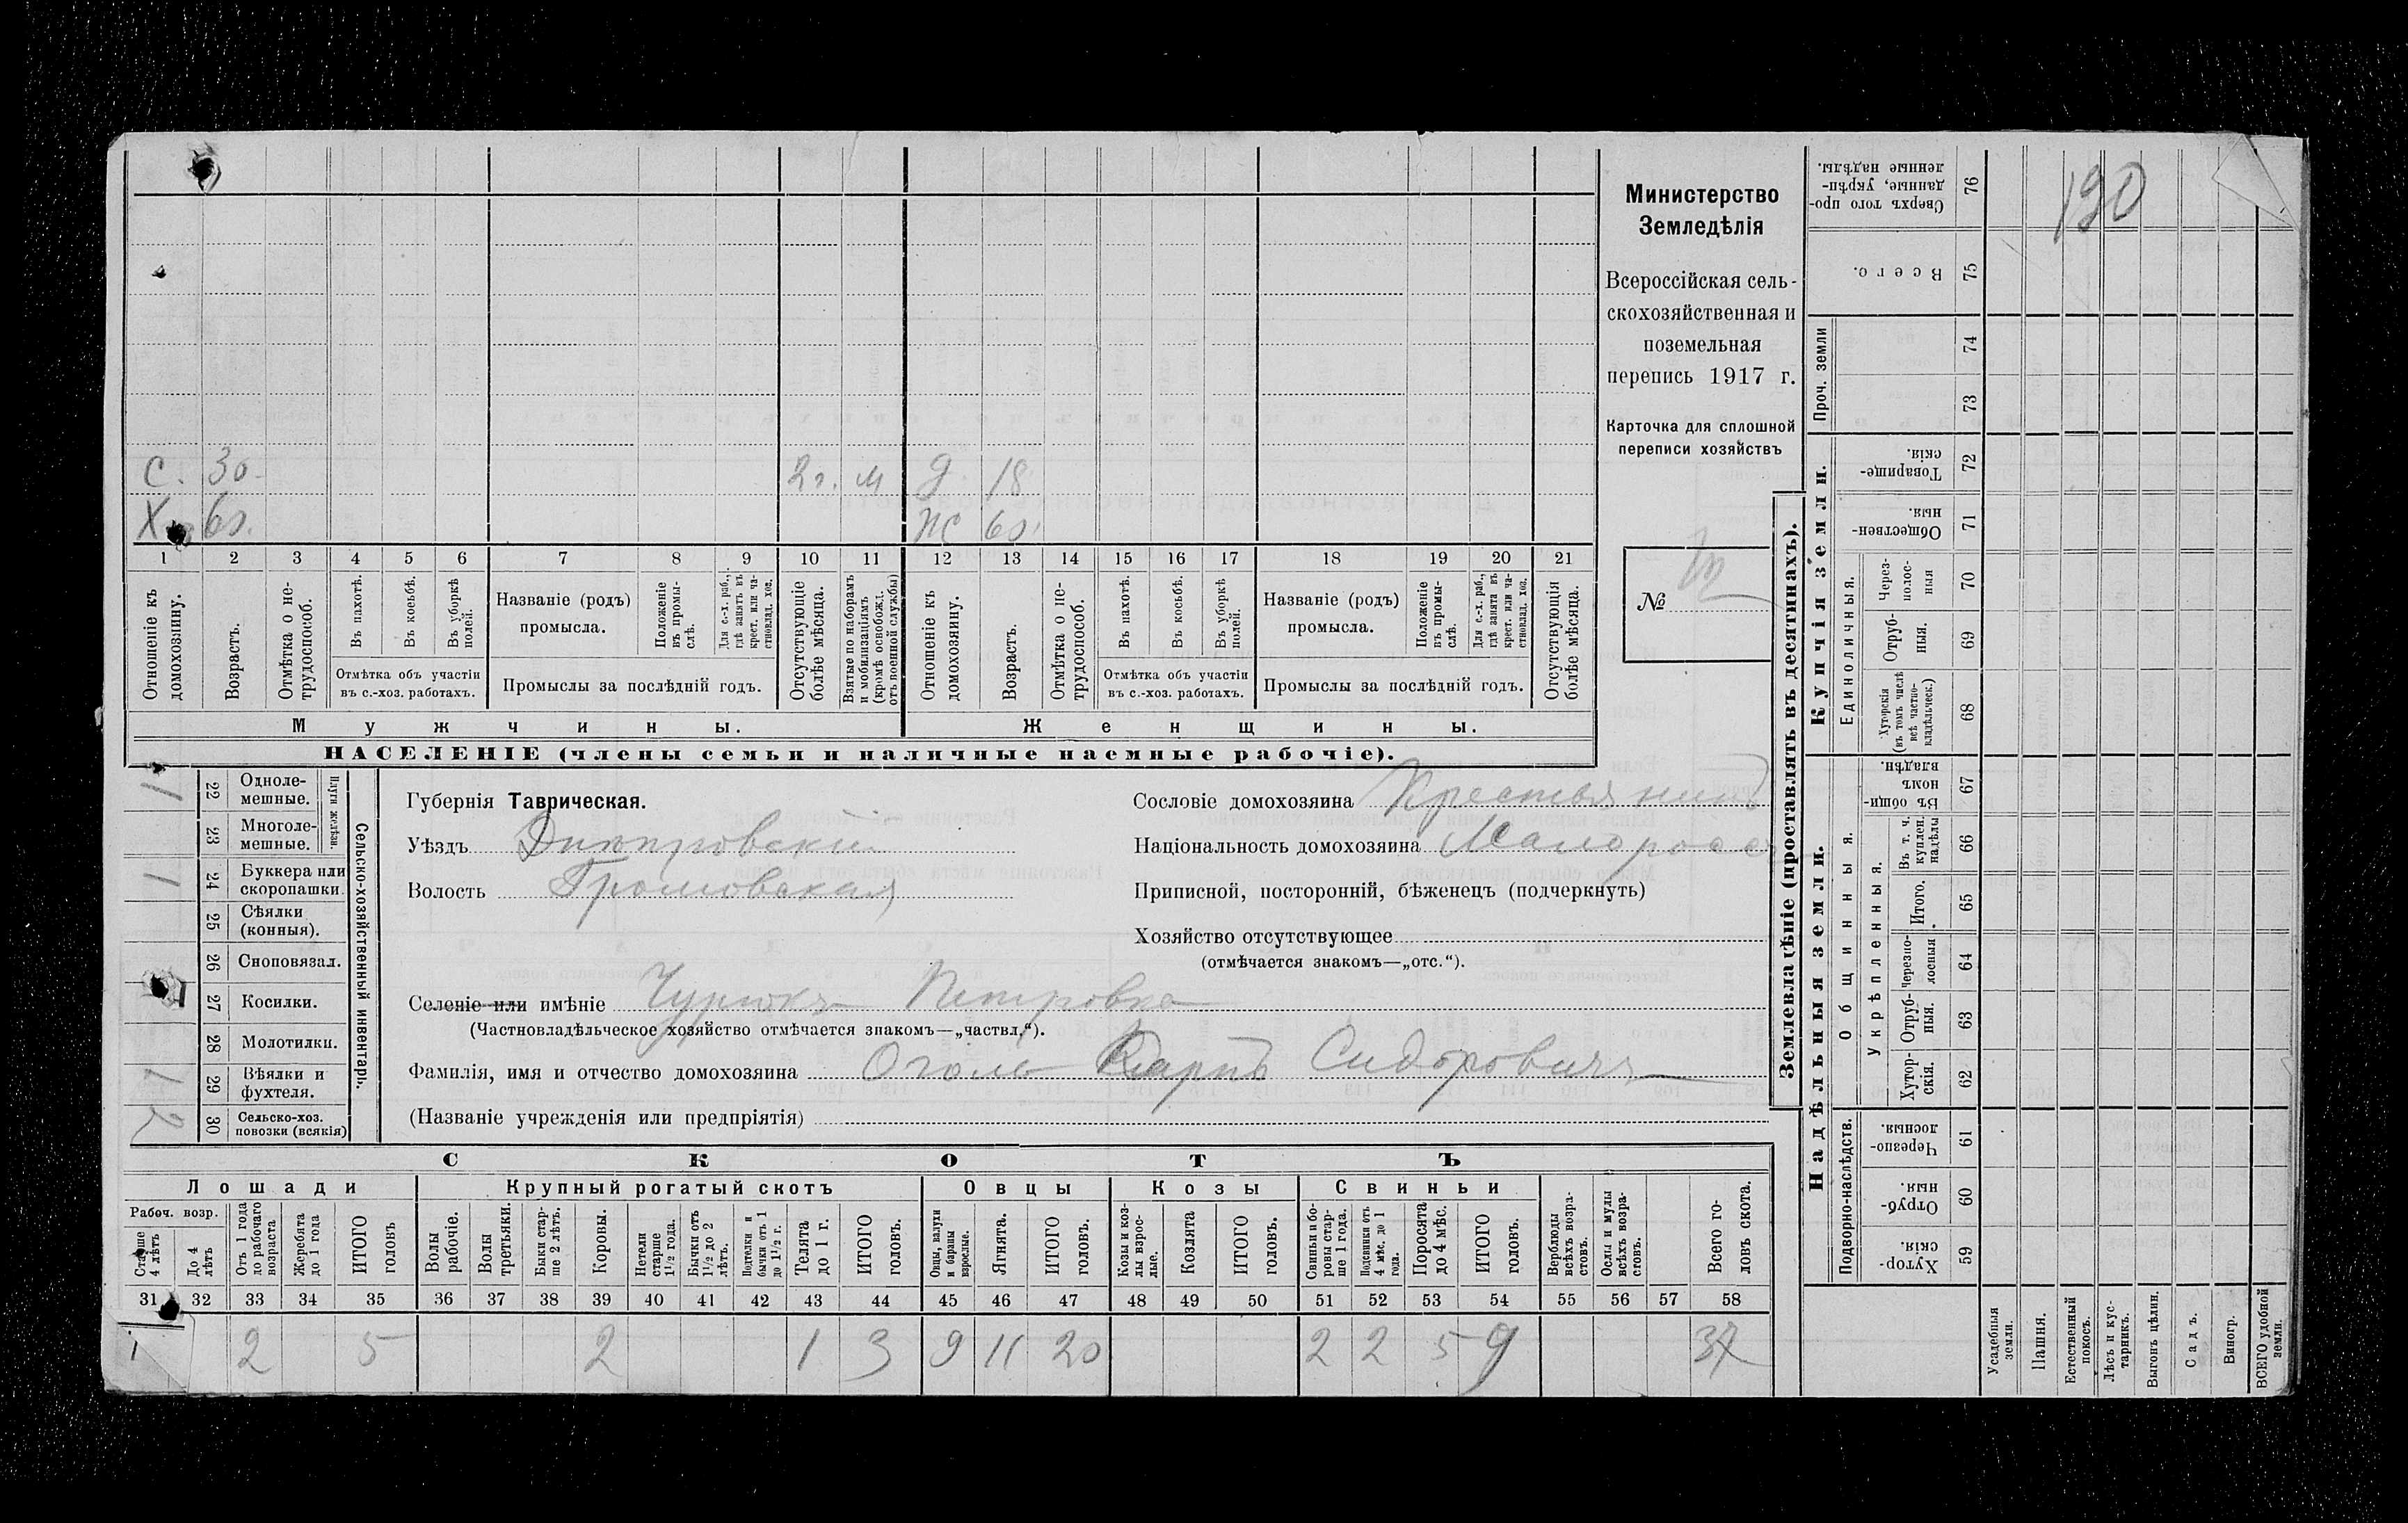 190
С. 30. 2 г. м Д. 18
Х. 60. Ж 60.
1 2 3 4 5 6 7 8 9 10 11 12 13 14 15 16 17 18 19 20 21
Отношеніе къ домохозяину.
Возрастъ.
Отмѣтка о не-трудоспособ.
Въ пахотѣ.
Въ косьбѣ.
Въ уборкѣ полей.
Отмѣтка объ участіи
въ с.-хоз. работахъ.
Названіе (родъ)
промысла.
Положеніе въ промы-слѣ.
Для с.-х. раб., гдѣ занятъ въ крест. или ча-стновлад. хоз.
Промыслы за послѣдній годъ.
Отсутствующіе болѣе мѣсяца.
Взятые по наборамъ и мобилизаціямъ (кромѣ освобожд. отъ военной службы)
Отношеніе къ домохозяину.
Возрастъ.
Отмѣтка о не-трудоспособ.
Въ пахотѣ.
Въ косьбѣ.
Въ уборкѣ полей.
Отмѣтка объ участіи
въ с.-хоз. работахъ.
Названіе (родъ)
промысла.
Положеніе въ промы-слѣ.
Для с.-х. раб., гдѣ занята въ крест. или ча-стновлад. хоз.
Промыслы за послѣдній годъ.
Отсутствующія болѣе мѣсяца.
Мужчины. Женщины.
НАСЕЛЕНІЕ (члены семьи и наличные наемные рабочіе).
Министерство
Земледѣлія
Всероссійская сель-
скохозяйственная и
поземельная
перепись 1917 г.
Карточка для сплошной
переписи хозяйствъ
№
Сельско-хозяйственный инвентарь.
Плуги желѣзн.
1 22 Одноле-мешные.
23 Многоле-мешные.
1 24 Буккера или скоропашки.
25 Сѣялки (конныя).
26 Сноповязал.
1 27 Косилки.
28 Молотилки.
1 29 Вѣялки и фухтеля.
2 30 Сельско-хоз. повозки (всякія)
Губернія Таврическая.
Уѣздъ Днѣпровскій
Волость Громовская
Сословіе домохозяина Крестьянинъ
Національность домохозяина Малоросс
Приписной, посторонній, бѣженецъ (подчеркнуть)
Хозяйство отсутствующее
(отмѣчается знакомъ—„отс.“).
Селеніе или имѣніе Чурюкъ Петровка
(Частновладѣльческое хозяйство отмѣчается знакомъ—„частвл.“).
Фамилія, имя и отчество домохозяина Оголь Карпъ Сидоровичъ
(Названіе учрежденія или предпріятія)
СКОТЪ
Лошади Крупный рогатый скотъ Овцы Козы Свиньи
Рабоч. возр.
Старше 4 лѣтъ
До 4 лѣтъ
Отъ 1 года до рабочаго возраста
Жеребята до 1 года
ИТОГО головъ
Волы рабочіе.
Волы третьяки.
Быки стар-ше 2 лѣтъ.
Коровы.
Нетели старше 1½ года.
Бычки отъ 1½ до 2 лѣтъ.
Подтелки и бычки отъ 1 до 1½ г.
Телята до 1 г.
ИТОГО головъ.
Овцы, валухи и бараны взрослые.
Ягнята.
ИТОГО головъ.
Козы и коз-лы взрос-лые.
Козлята
ИТОГО головъ.
Свиньи и бо-ровы стар-ше 1 года.
Подсвинки отъ 4 мѣс. до 1 года.
Поросята до 4 мѣс.
ИТОГО головъ.
Верблюды всѣхъ возра-стовъ.
Ослы и мулы всѣхъ возра-стовъ.
Всего го-ловъ скота.
31 32 33 34 35 36 37 38 39 40 41 42 43 44 45 46 47 48 49 50 51 52 53 54 55 56 57 58
2 5 2 1 3 9 11 20 2 2 5 9 37
Землевладѣніе (проставлять въ десятинахъ).
Купчія земли.
Надѣльныя земли.
Сверхъ того про-данные, укрѣп-ленные надѣлы. 76
Всего. 75
Проч. земли
74
73
Товарище-скія. 72
Обществен-ныя. 71
Единоличныя.
Через-полос-ныя 70
Отруб-ныя. 69
Хуторскія (въ томъ числѣ всѣ частно-владѣльческ.) 68
Общинныя.
Въ общи-номъ владѣн. 67
Укрѣпленныя.
Въ т. ч. куплен. надѣлы 66
Итого. 65
Черезпо-лосныя 64
Отруб-ныя. 63
Хутор-скія. 62
Подворно-наслѣдств.
Черезпо-лосныя. 61
Отруб-ныя. 60
Хутор-скія. 59
Усадебныя земли.
Пашня.
Естественный покосъ.
Лѣсъ и кус-тарникъ.
Выгонъ цѣлин.
Садъ.
Виногр.
ВСЕГО удобной земли.